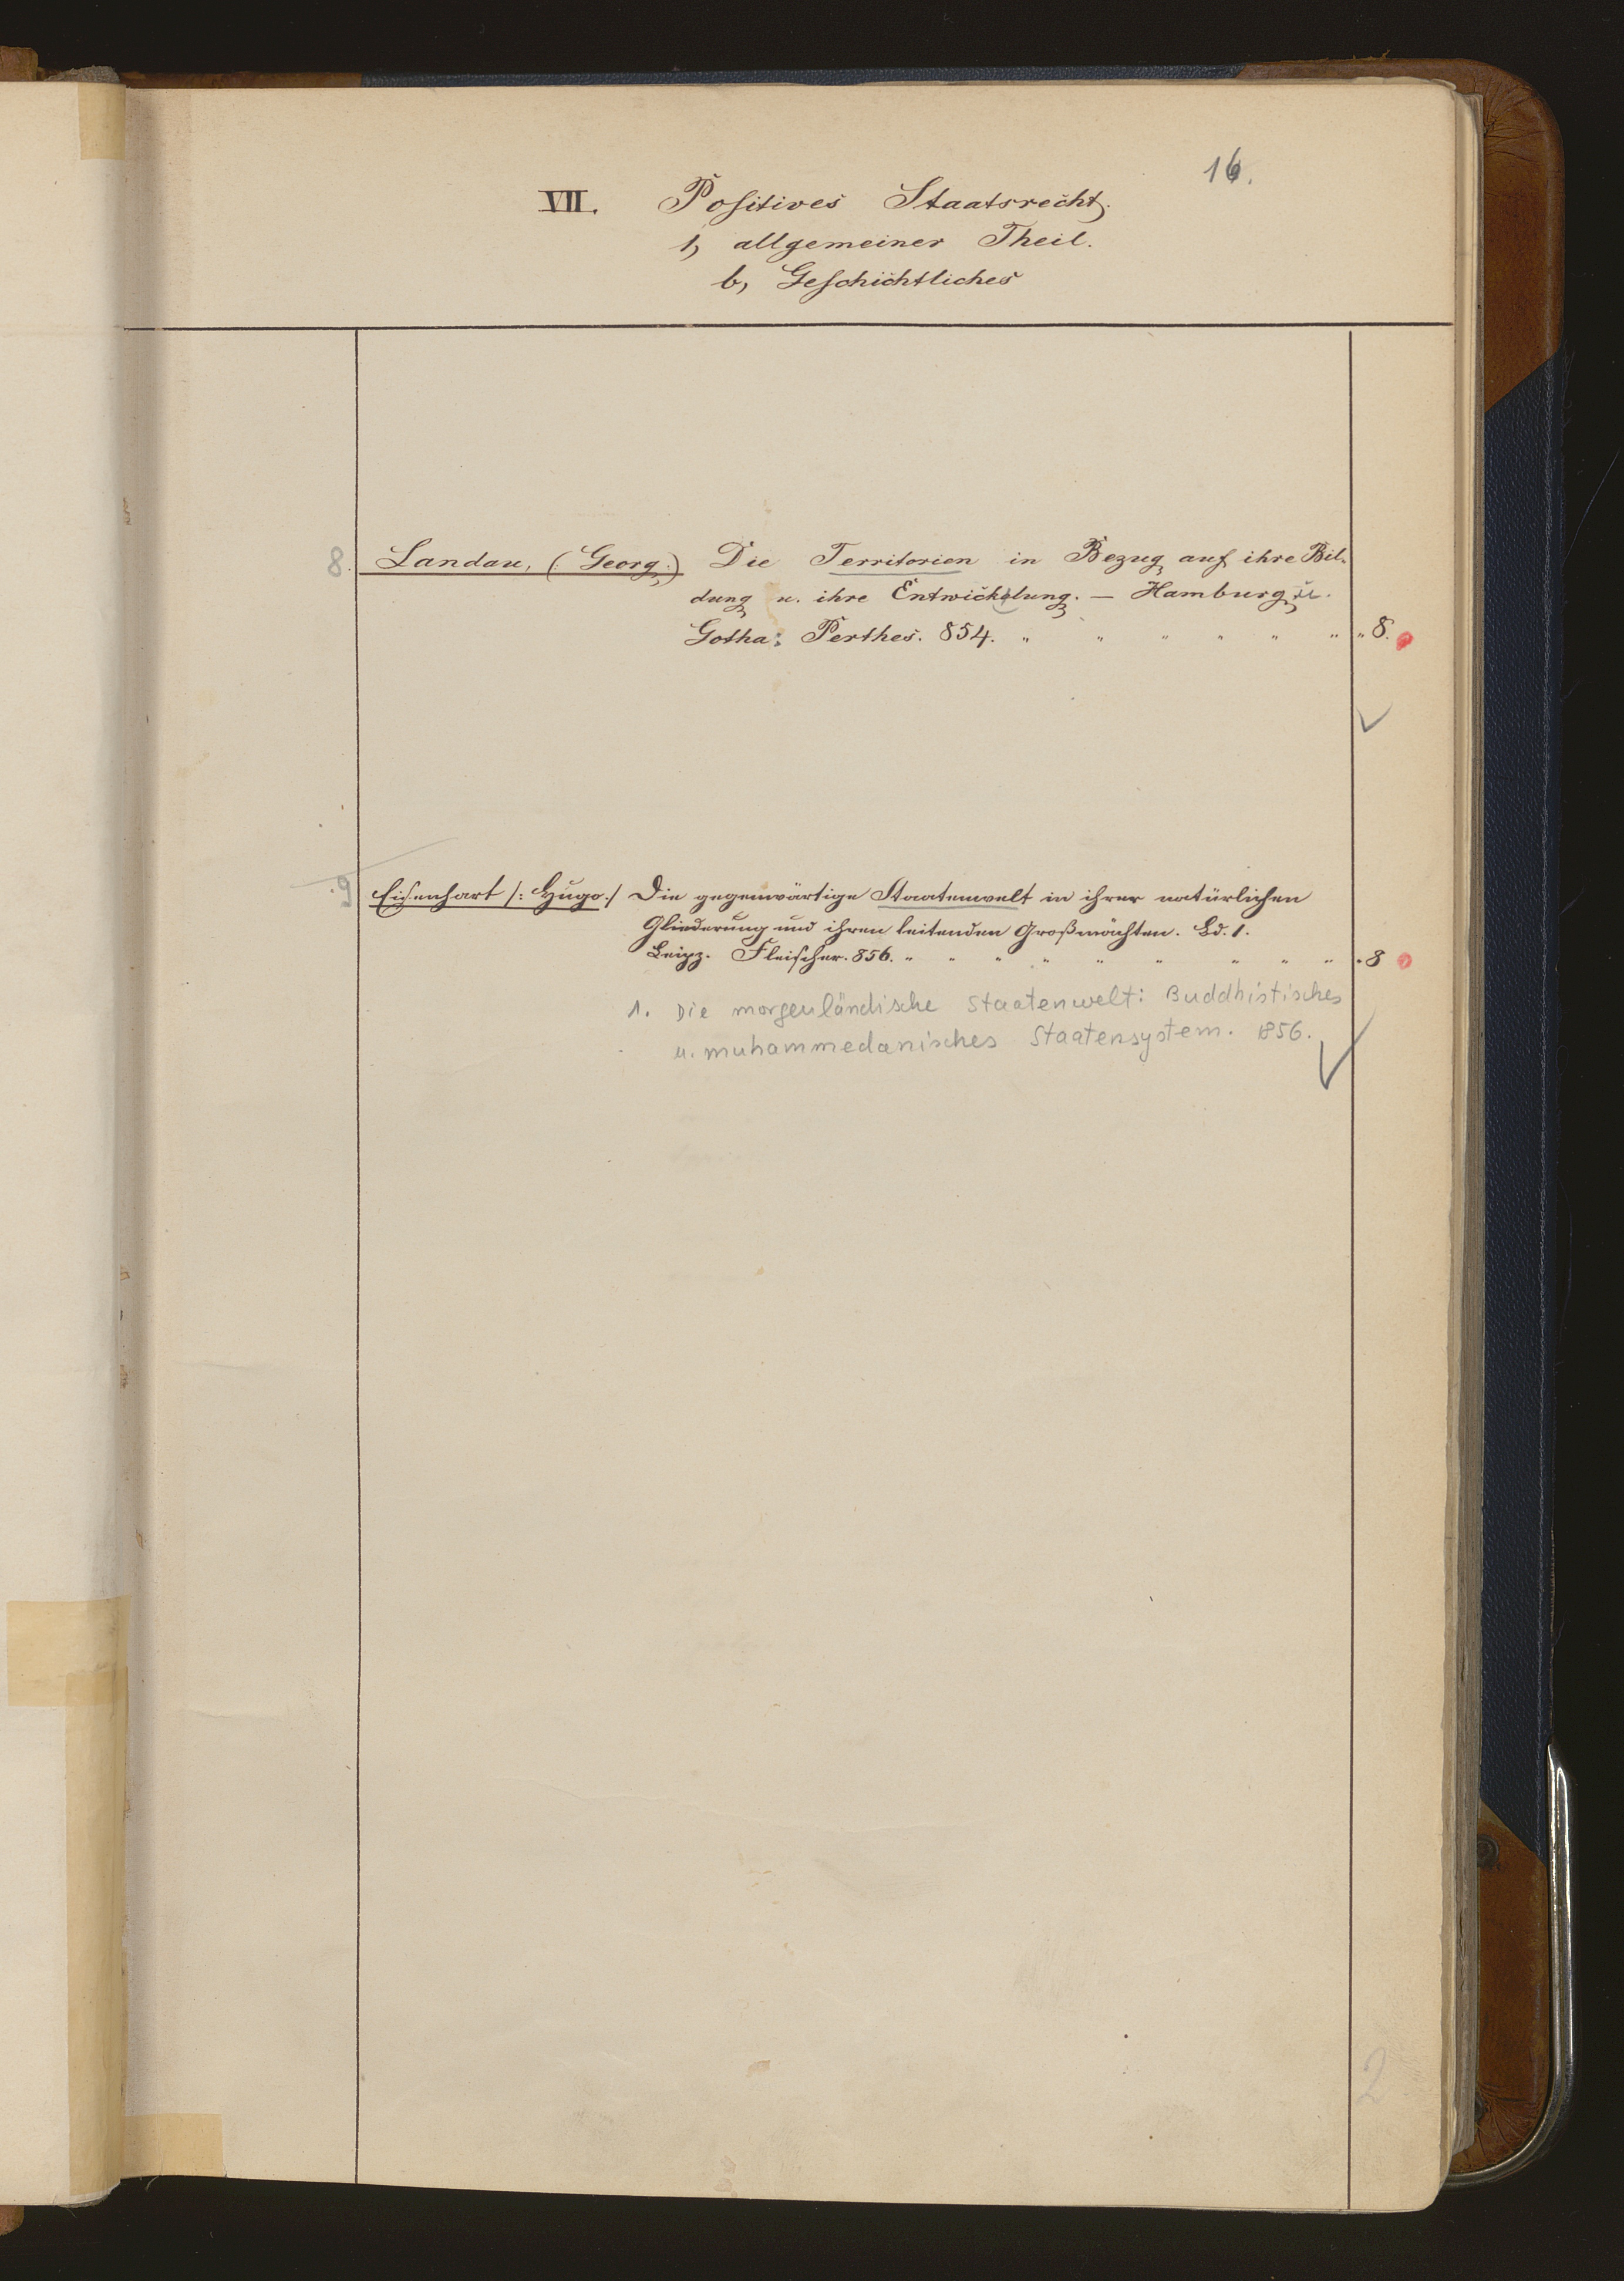 16.
VII. Positives Staatsrecht.
1, allgemeiner Theil.
b, Geschichtliches
8. Landau, (: Georg.) Die Territorien in Bezug auf ihre Bil-
dung u. ihre Entwickelung. — Hamburg u.
Gotha: Perthes. 854. " " " " " " " 8.
9 Eisenhart /: Hugo./ Die gegenwärtige Staatenwelt in ihrer natürlichen
Gliederung und ihren leitenden Großmächten. Bd. 1.
Leipz. Fleischer. 856. " " " " " " " " " " 8
1. Die morgenländische Staatenwelt: Buddhistisches
u. muhammedanisches Staatensystem. 1856.
2